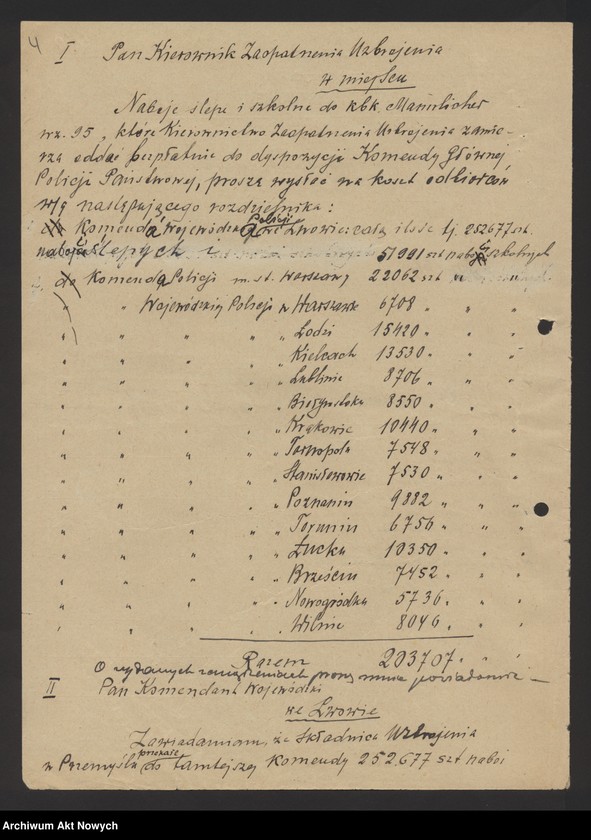 4
I Pan Kierownik Zaopatrzenia Uzbrojenia
w miejscu
Naboje ślepe i szkolne do kbk. Mannlicher
wz. 95, które Kierownictwo Zaopatrzenia Uzbrojenia zamie-
rza oddać bezpłatnie do dyspozycji Komendy Głównej
Policji Państwowej, proszę wysłać na koszt odbiorców
w/g następującego rozdzielnika:
Komenda Wojewódzka Policji we Lwowie: cała ilość tj. 252677 szt.
naboje ślepych i 51991 szt naboje szkolnych
do Komenda Policji m. st. Warszawy 22062 szt
" " Wojewódzkiej Policji w Warszawie 6708 " " "
" " " " " Łodzi 15420 " " "
" " " " " Kielcach 13530 " " "
" " " " " Lublinie 8706 " " "
" " " " " Białymstoku 8550 " " "
" " " " " Krakowie 10440 " " "
" " " " " Tarnopolu 7548 " " "
" " " " " Stanisławowie 7530 " " "
" " " " " Poznaniu 9882 " " "
" " " " " Toruniu 6756 " " "
" " " " " Łucku 10350 " " "
" " " " " Brześciu 7452 " " "
" " " " " Nowogródku 5736 " " "
" " " " " Wilnie 8046 " " "
Razem 203707 " " "
O wydanych zarządzeniach proszę mnie powiadomić –
II Pan Komendant Wojewódzki
we Lwowie
Zawiadamiam, że Składnica Uzbrojenia
w Przemyślu przekaże do tamtejszej Komendy 252.677 szt naboi
Archiwum Akt Nowych